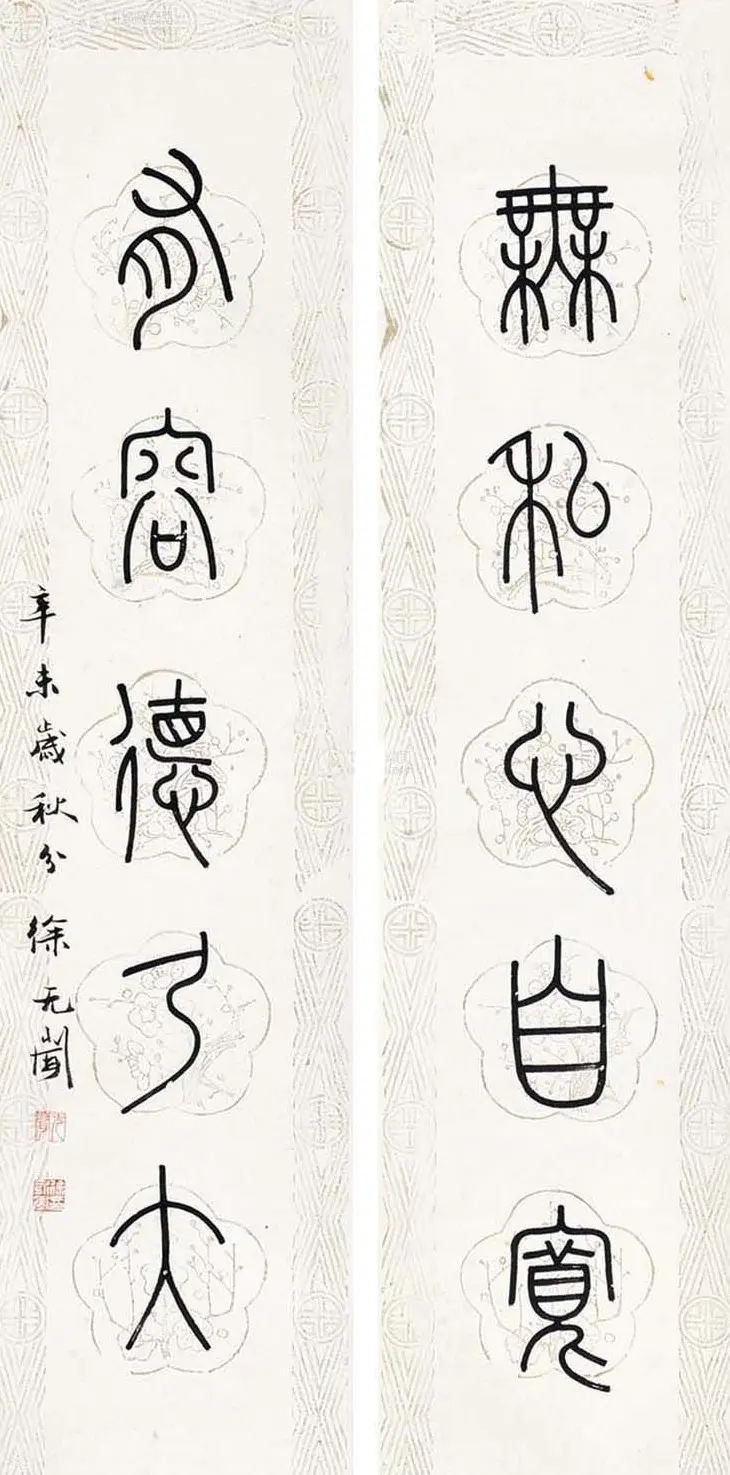 無私心自寬
有容德乃大
辛未歲秋分 徐无聞